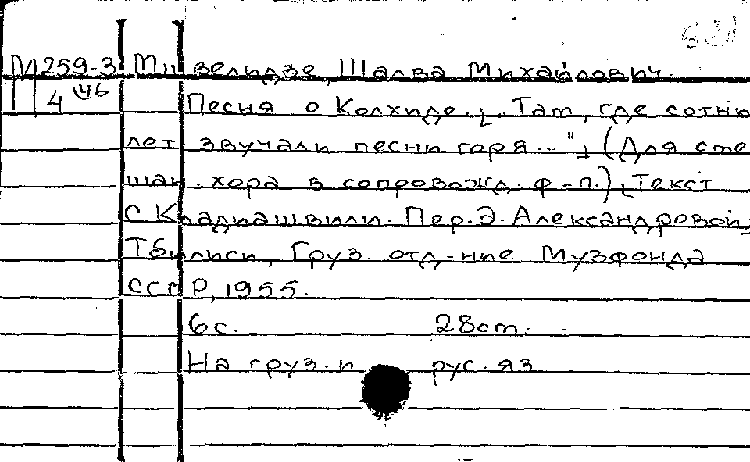 631
М 259-3 Мшвелидзе, Шалва Михайлович.
4 446 Песня о Колхиде. [„Там, где сотню
лет звучали песни горя..."] (Для сме
шан. хора в сопровожд. ф-п.) [Текст
С. Клдиашвили. Пер. Э. Александровой]
Тбилиси, Груз. отд-ние Музфонда
СССР, 1955.
6 с. 28 cm.
На груз. и рус. яз